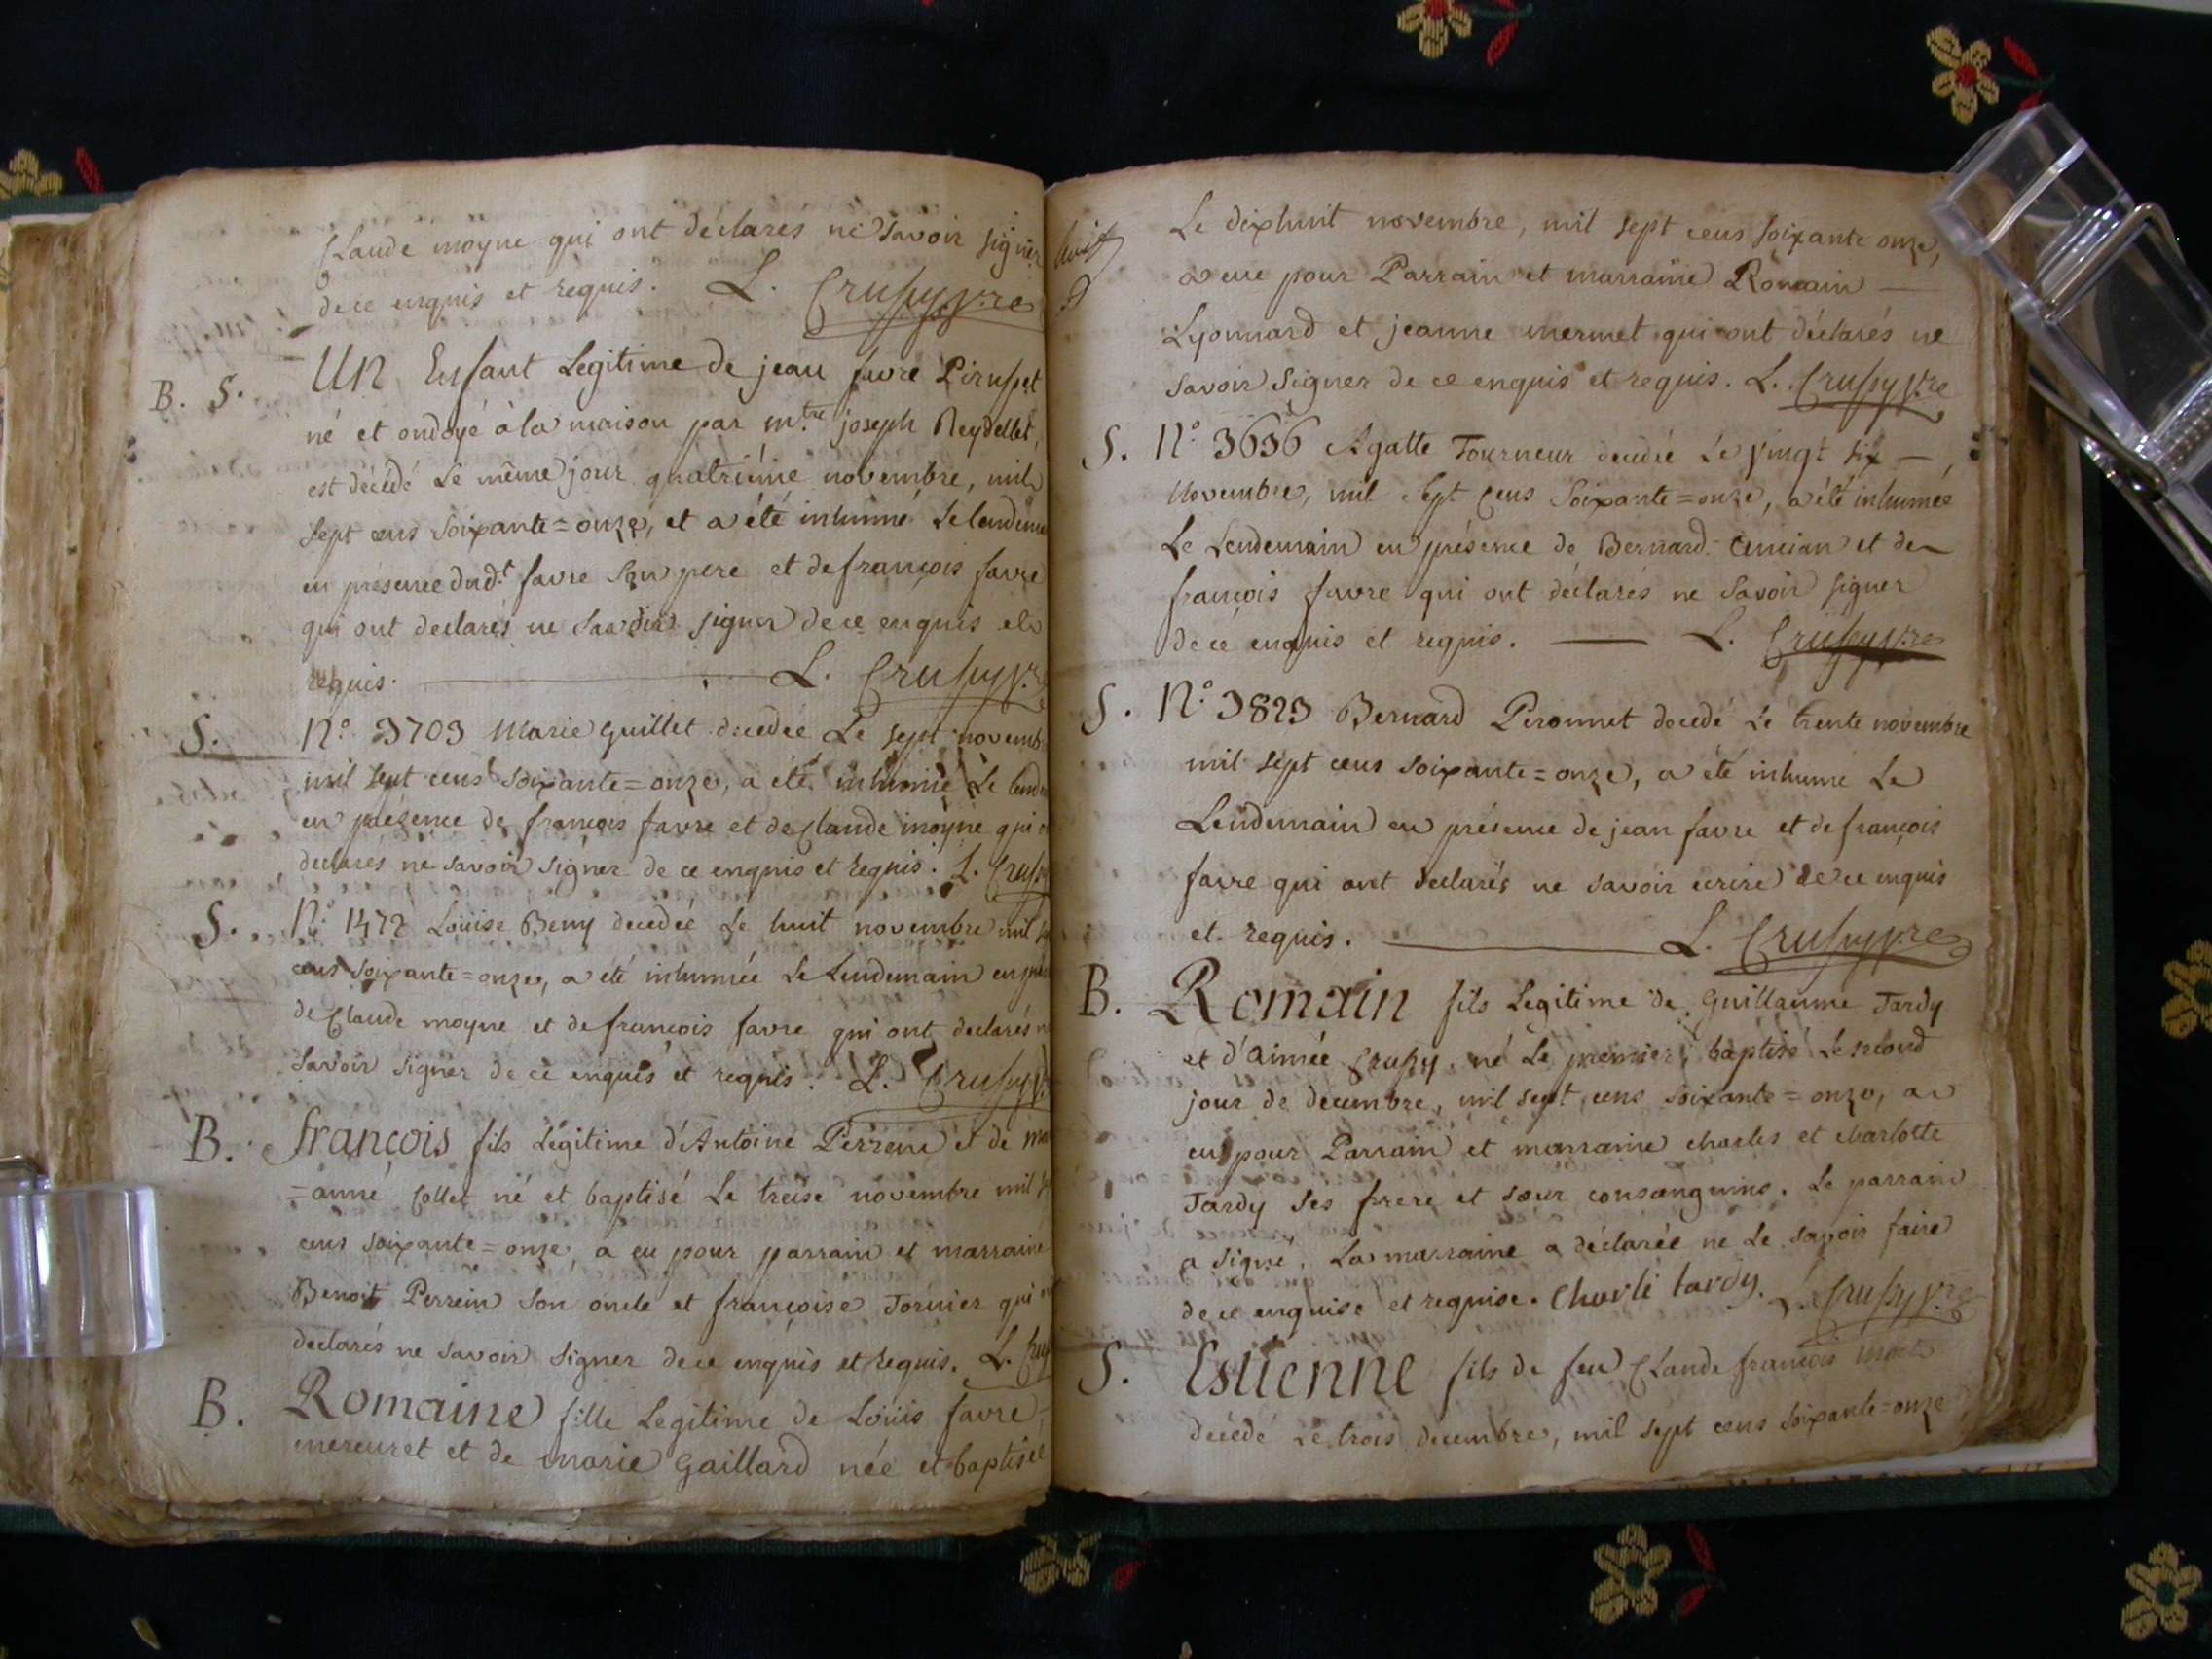 Claude moyne qui ont déclarés ne savoir signer
de ce enquis et requis. L. Crussy v.re
B. S. Un Enfant Legitime de jean favre Pirusset
né et ondoyé à la maison par m.tre joseph Reydellet,
est décédé Le même jour quatriéme novembre, mil
sept cens soixante=onze, et a été inhumé Le lendem
en présence dud.t favre son pere et de françois favre
qui ont declarés ne savoir signer de ce enquis et
requis. L. Crussy v.
S. N.o 3703 Marie Guillet decedée Le sept novemb
mil sept cens soixante=onze, a été inhumée Le lend
en présence de françois favre et de Claude moyne qui
declarés ne savoir signer de ce enquis et requis. L. Crussy
S. N.o 1472 Loüise Beny decedée Le huit novembre mil
cens soixante=onze, a été inhumée Le Lendemain en
de Claude moyne et de françois favre qui ont declarés
savoir signer de ce enquis et requis. L. Crussy v.
B. françois fils Légitime d'Antoine Perrein et de
=anne Collet né et baptisé Le treise novembre mil
cens soixante=onze, a eu pour parrain et marraine
Benoit Perrein son oncle et françoise Tornier qui
declarés ne savoir signer de ce enquis et requis. L.
B. Romaine fille Legitime de Loüis favre
mercuret et de marie Gaillard née et baptisée
huit
Le dixhuit novembre, mil sept cens soixante onze,
a eue pour Parrain et marraine Romain
Lyonnard et jeanne mermet qui ont déclarés ne
savoir signer de ce enquis et requis. L. Crussy v.re
S. N.o 3636 Agatte Tourneur decedée Le vingt six
novembre, mil sept cens soixante=onze, a été inhumée
Le Lendemain en présence de Bernard et de
françois favre qui ont déclarés ne savoir signer
de ce enquis et requis. L. Crussy v.re
S. N.o 3823 Bernard Peronnet decedé Le trente novembre
mil sept cens soixante=onze, a été inhumé Le
Lendemain en présence de jean favre et de françois
favre qui ont declarés ne savoir ecrire de ce enquis
et requis. L. Crussy v.re
B. Romain fils Legitime de Guillaume Tardy
et d'aimée Crussy, né Le premier, baptisé Le second
jour de decembre, mil sept cens soixante=onze, a
eu pour Parrain et marraine charles et charlotte
Tardy ses frere et soeur consanguins. Le parrain
a signé, La marraine a déclarée ne Le savoir faire
de ce enquise et requise. Charle tardy. L. Crussy v.re
S. Estienne fils de feu Claude françois
décédé Le trois decembre, mil sept cens soixante=onze